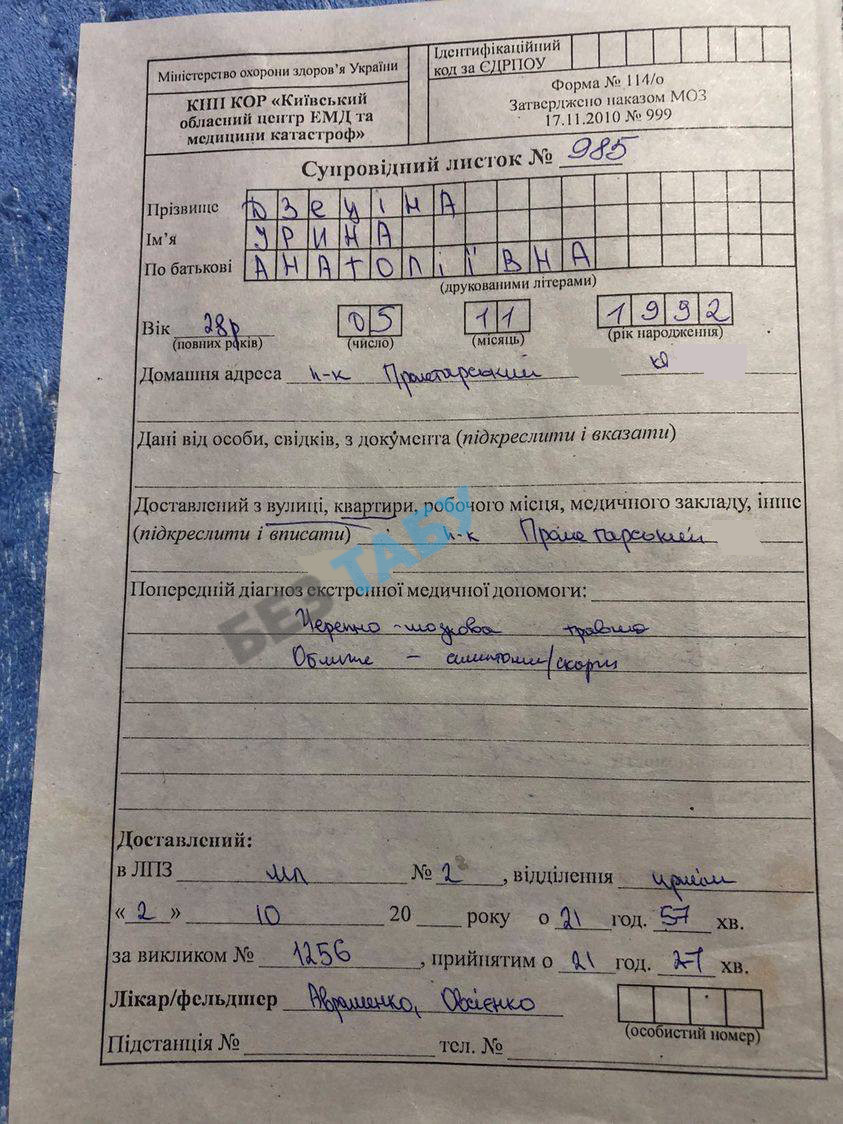 Міністерство охорони здоров’я України
КНП КОР «Київський
обласний центр ЕМД та
медицини катастроф»
Ідентифікаційний
код за ЄДРПОУ
Форма № 114/о
Затверджено наказом МОЗ
17.11.2010 № 999
Супровідний листок № 985
Прізвище ДЗЕЦІНА
Ім’я ІРИНА
По батькові АНАТОЛІЇВНА
(друкованими літерами)
Вік 28р 05 11 1992
(повних років) (число) (місяць) (рік народження)
Домашня адреса п-к Пролетарський
Дані від особи, свідків, з документа (підкреслити і вказати)
Доставлений з вулиці, квартири, робочого місця, медичного закладу, інше
(підкреслити і вписати) п-к Пролетарський
БЕЗ ТАБУ
Попередній діагноз екстренної медичної допомоги:
Черепно-мозкова травма
симптоми/скарги
Доставлений:
в ЛПЗ № 2, відділення
«2» 10 20 року о 21 год. 57 хв.
за викликом № 1256, прийнятим о 21 год. 27 хв.
Лікар/фельдшер Авраменко, Овсієнко
(особистий номер)
Підстанція № тел. №